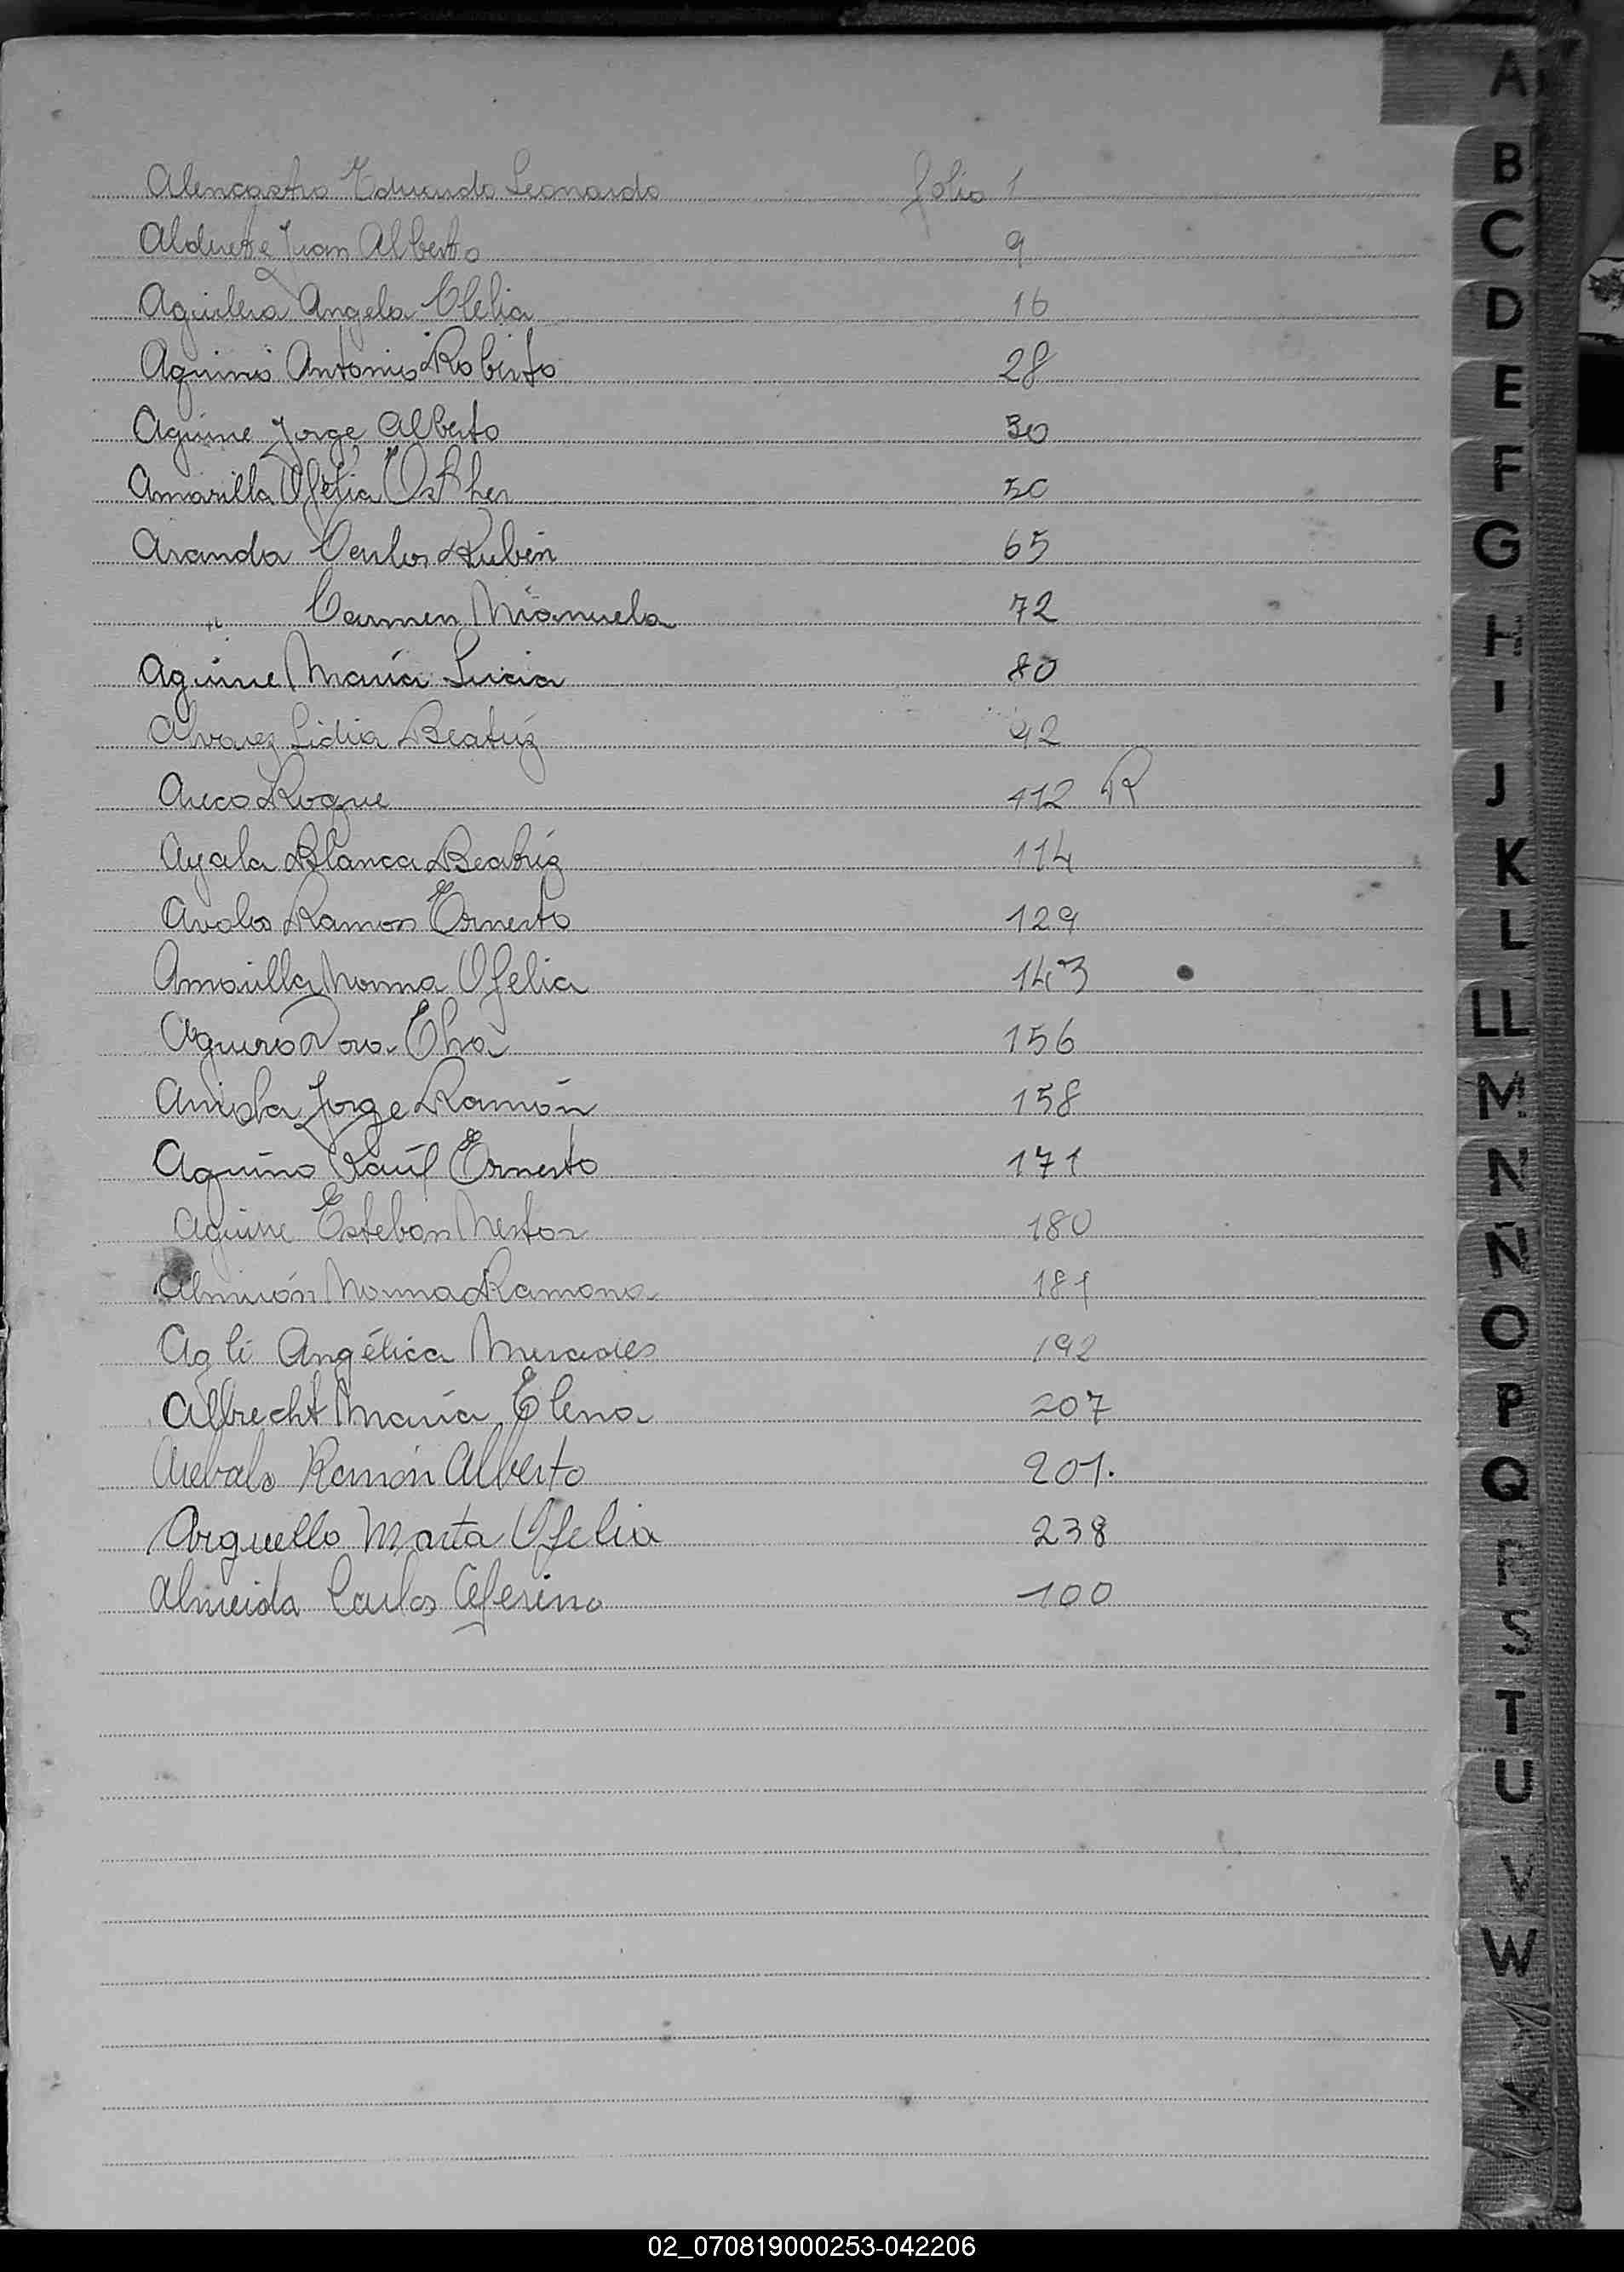 Alencastro Eduardo Leonardo folio 1
Alderete Juan Alberto 9
Aguilera Angela Clelia 16
Aquino Antonio Roberto 28
Aguirre Jorge Alberto 30
Amarilla Ofelia Esther 50
Aranda Carlos Rubén 65
" Carmen Manuela 72
Aguirre María Lucia 80
Alvarez Lidia Beatriz 92
Areco Roque 112 R
Ayala Blanca Beatríz 114
Avalos Ramon Ernesto 129
Amarilla Norma Ofelia 143
Aguero Dora Elva 156
Jorge Ramón 158
Aquino Raúl Ernesto 171
Aguirre Esteban Nestor 180
Almirón Norma Ramona 189
Agli Angélica Mercedes 192
Albrecht María Elena 207
Arebalo Ramón Alberto 201.
Arguello Marta Ofelia 238
Almeida Carlos Ceferino 100
A
B
C
D
E
F
G
H
I
J
K
L
LL
M
N
Ñ
O
P
Q
R
S
T
U
V
W
02_070819000253-042206